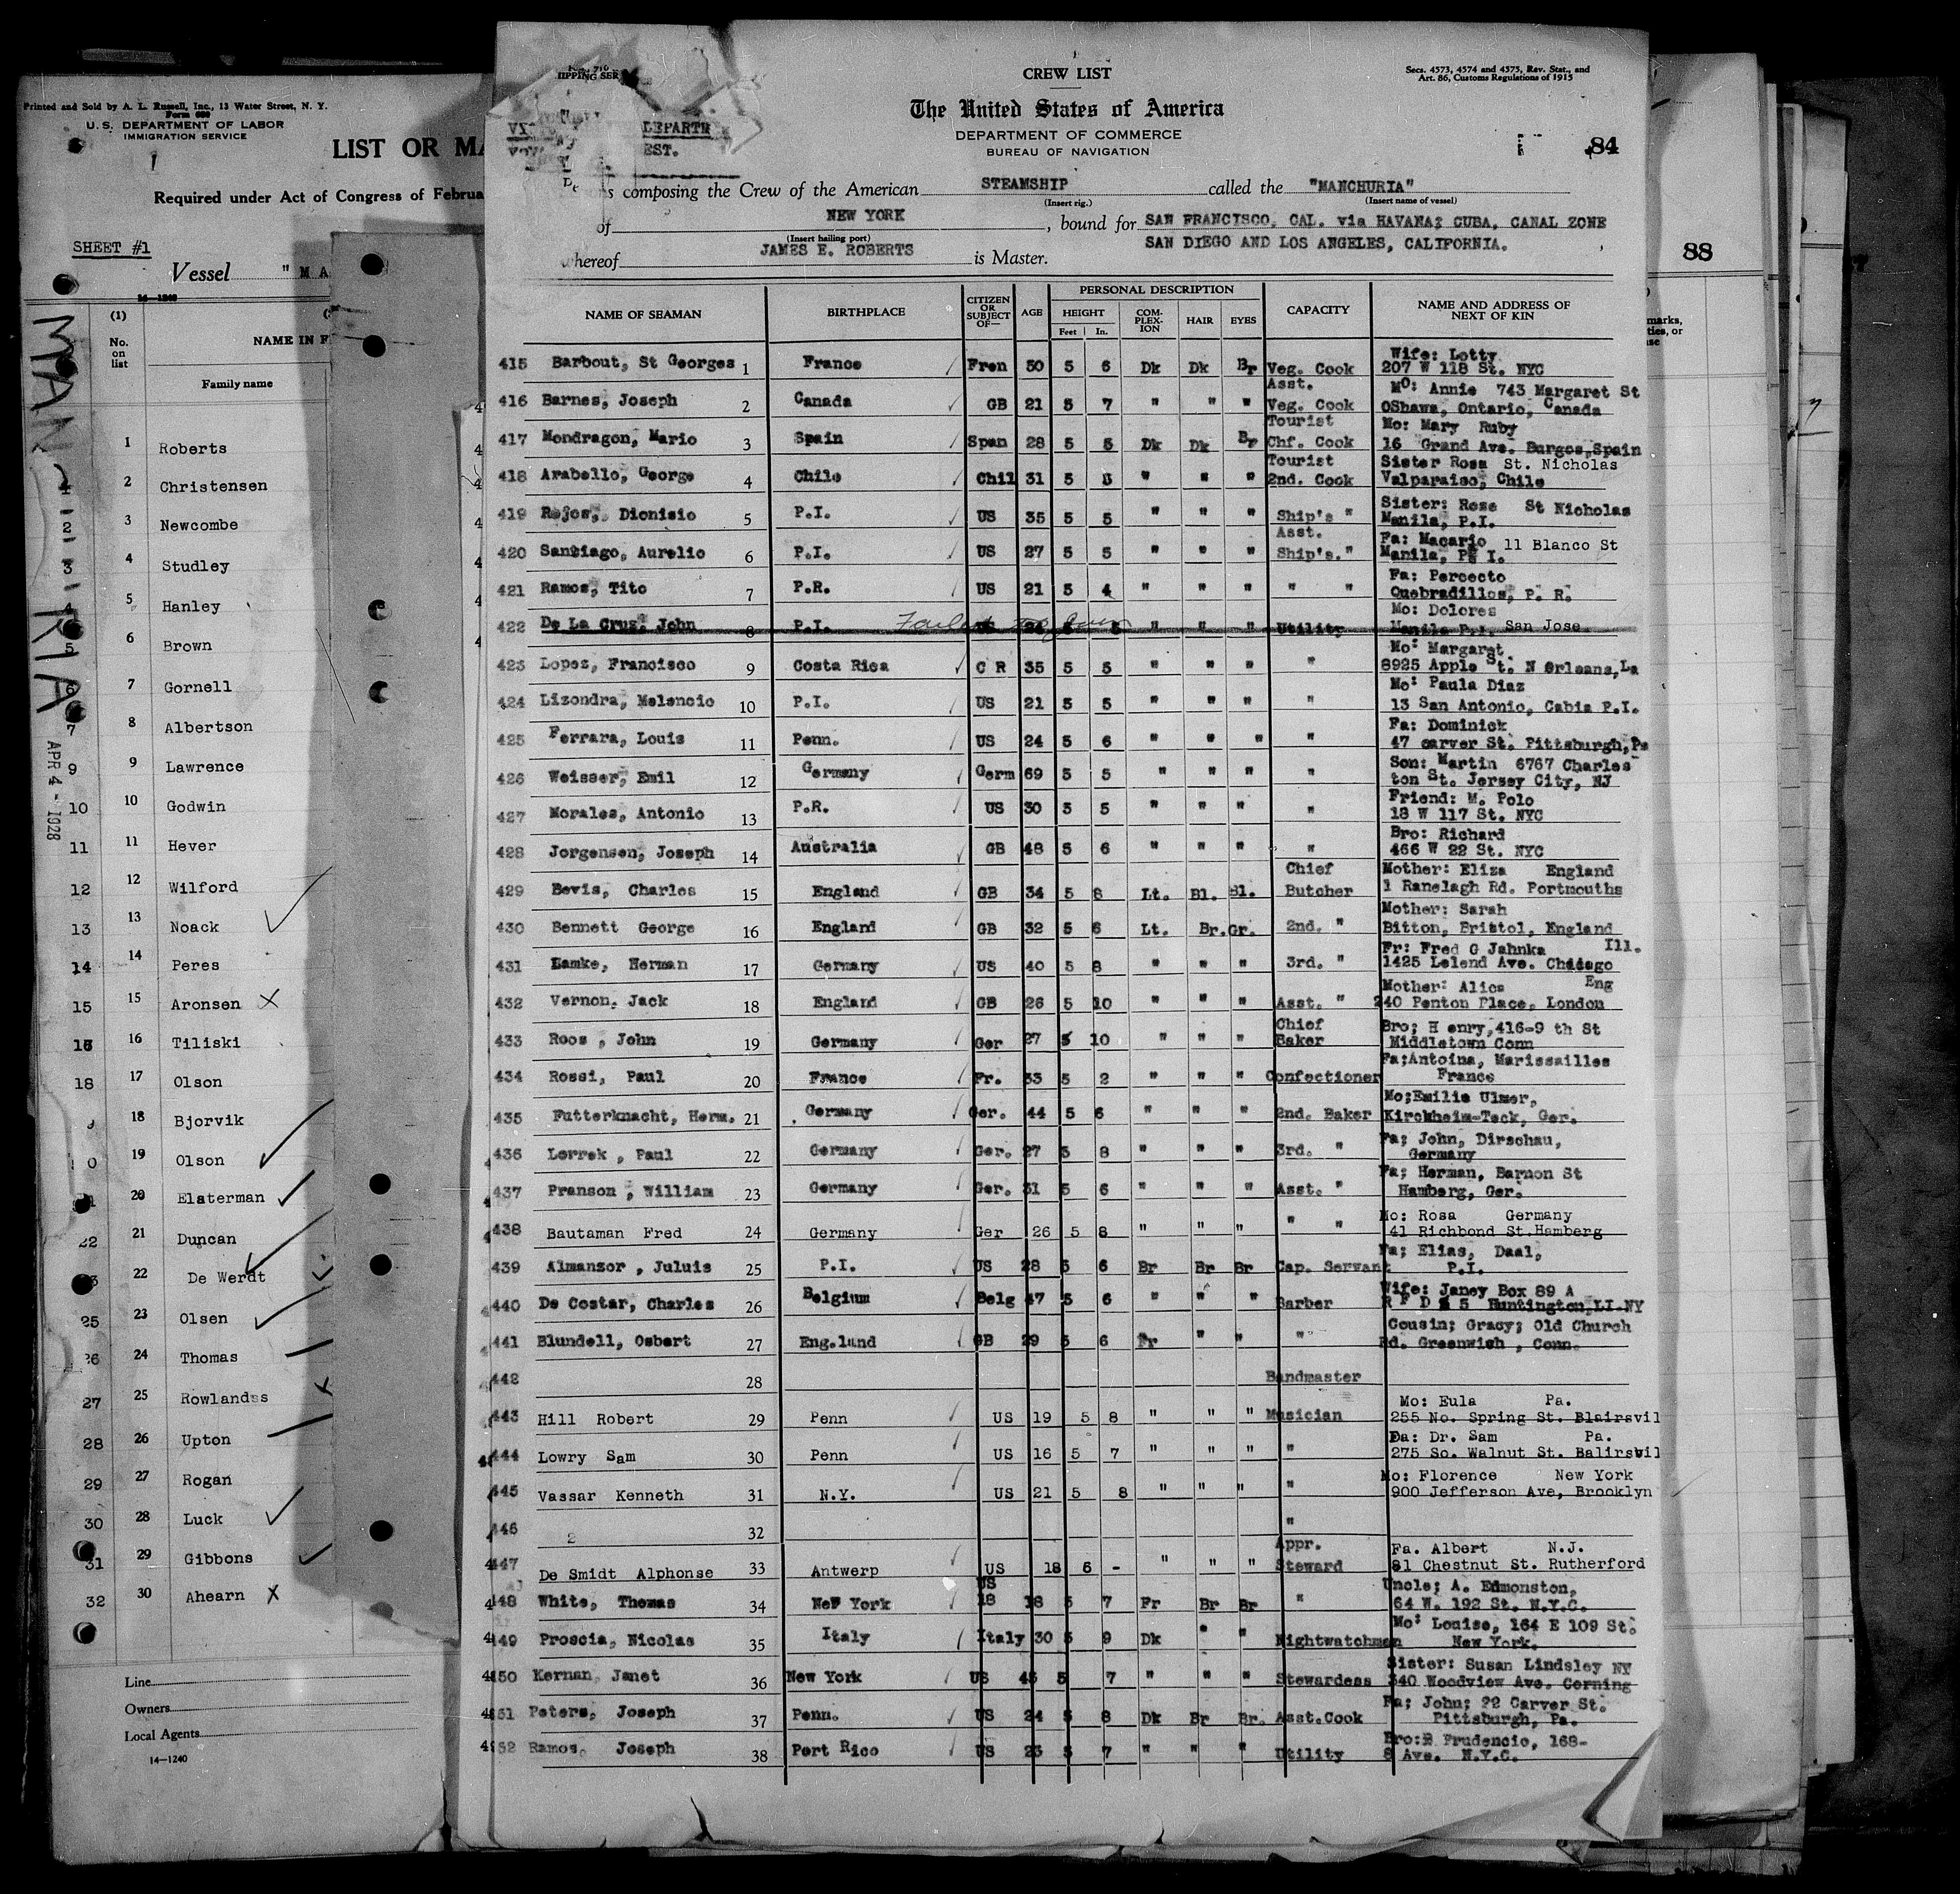 Printed and Sold by A. L. Russell, Inc., 13 Water Street, N. Y.
Form 680
U. S. DEPARTMENT OF LABOR
IMMIGRATION SERVICE
LIST OR MA
Required under Act of Congress of Februa
SHEET #1
Vessel "MA
14—1240
(1)
No. on list
NAME IN F
Family name
MAN
RIA
APR 4 - 1928
1 Roberts
2 Christensen
3 Newcombe
4 Studley
5 Hanley
6 Brown
7 Gornell
8 Albertson
9 Lawrence
10 Godwin
11 Hever
12 Wilford
13 Noack
14 Peres
15 Aronsen
16 Tiliski
17 Olson
18 Bjorvik
19 Olson
20 Elsterman
21 Duncan
22 De Werdt
23 Olsen
24 Thomas
25 Rowlandss
26 Upton
27 Rogan
28 Luck
29 Gibbons
30 Ahearn
Line
Owners
Local Agents
14—1240
CREW LIST
Secs. 4573, 4574 and 4575, Rev. Stat., and
Art. 86, Customs Regulations of 1915
The United States of America
DEPARTMENT OF COMMERCE
BUREAU OF NAVIGATION
84
DEPARTM
EST.
s composing the Crew of the American STEAMSHIP called the "MANCHURIA"
(Insert rig.) (Insert name of vessel)
of NEW YORK, bound for SAN FRANCISCO, CAL. via HAVANA; CUBA, CANAL ZONE
(Insert hailing port) SAN DIEGO AND LOS ANGELES, CALIFORNIA.
whereof JAMES E. ROBERTS is Master.
88
NAME OF SEAMAN BIRTHPLACE CITIZEN OR SUBJECT OF— AGE PERSONAL DESCRIPTION CAPACITY NAME AND ADDRESS OF NEXT OF KIN
HEIGHT COM-PLEX-ION HAIR EYES
Feet In.
415 Barbout, St Georges 1 France Fren 50 5 6 Dk Dk Br Veg. Cook Wife: Lotty 207 W 118 St. NYC
416 Barnes, Joseph 2 Canada GB 21 5 7 " " " Asst. Veg. Cook MO: Annie 743 Margaret St OShawa, Ontario, Canada
417 Mondragon, Mario 3 Spain Span 28 5 5 Dk Dk Br Tourist Chf. Cook Mo: Mary Ruby 16 Grand Ave. Burgos, Spain
418 Arabello, George 4 Chile Chil 31 5 " " " Tourist 2nd. Cook Sister Rosa St. Nicholas Valparaiso, Chile
419 Rojos, Dionisio 5 P.I. US 35 5 5 " " " Ship's " Sister: Rose St Nicholas Manila, P.I.
420 Santiago, Aurelio 6 P.I. US 27 5 5 " " " Asst. Ship's. " Fa: Macario 11 Blanco St Manila, P I.
421 Ramos, Tito 7 P.R. US 21 5 4 " " " " " Fa: Percecto Quebradillos, P. R.
422 De La Cruz, John 8 P.I. Failed to Join " " " Utility Mo: Dolores Manila P.I. San Jose
423 Lopez, Francisco 9 Costa Rica C R 35 5 5 " " " " Mo: Margaret 8925 Apple St. N Orleans, La
424 Lizondra, Melencio 10 P.I. US 21 5 5 " " " " Mo: Paula Diaz 13 San Antonio, Cabia P.I.
425 Ferrara, Louis 11 Penn. US 24 5 6 " " " " Fa: Dominick 47 carver St. Pittsburgh, Pa
426 Weisser, Emil 12 Germany Germ 69 5 5 " " " " Son: Martin 6767 Charles ton St. Jersey City, NJ
427 Morales, Antonio 13 P.R. US 30 5 5 " " " " Friend: M. Polo 18 W 117 St. NYC
428 Jorgensen, Joseph 14 Australia GB 48 5 6 " " " " Bro: Richard 466 W 22 St. NYC
429 Bevis, Charles 15 England GB 34 5 8 Lt. Bl. Bl. Chief Butcher Mother: Eliza England 1 Ranelagh Rd. Portmouths
430 Bennett George 16 England GB 32 5 6 Lt. Br. Gr. 2nd. " Mother: Sarah Bitton, Bristol, England
431 Lamke, Herman 17 Germany US 40 5 8 " " " 3rd. " Fr: Fred G Jahnka Ill. 1425 Lelend Ave. Chicago
432 Vernon, Jack 18 England GB 26 5 10 " " " Asst. " Mother: Alice Eng 240 Penton Place, London
433 Roos , John 19 Germany Ger 27 5 10 " " " Chief Baker Bro; H enry,416-9 th St Middletown Conn
434 Rossi, Paul 20 France Fr. 33 5 2 " " " Confectioner Fa;Antoina, Marissailles France
435 Futterknacht, Herm. 21 Germany Ger. 44 5 6 " " " 2nd. Baker Mo;Emilie Ulmer, Kirchheim-Teck, Ger.
436 Lorrek , Paul 22 Germany Ger. 27 5 8 " " " 3rd. " Fa; John, Dirschau, Germany
437 Pranson , William 23 Germany Ger. 31 5 6 " " " Asst. " Fa; Herman, Barnon St Hamberg, Ger.
438 Bautaman Fred 24 Germany Ger 26 5 8 " " " " " Mo: Rosa Germany 41 Richbond St.Hamberg
439 Almanzor , Juluis 25 P.I. US 28 5 6 Br Br Br Cap. Servant Fa; Elias, Daal, P.I.
440 De Costar, Charles 26 Belgium Belg 47 5 6 " " " Barber Wife: Janey Box 89 A R F D # 5 Huntington,LI.NY
441 Blundell, Osbert 27 Eng.land GB 29 5 6 Fr " " " Cousin; Gracy; Old Church Rd. Greenwish , Conn.
442 28 Bandmaster
443 Hill Robert 29 Penn US 19 5 8 " " " Musician Mo: Eula Pa. 255 No. Spring St. Blairsvil
444 Lowry Sam 30 Penn US 16 5 7 " " " " Da: Dr. Sam Pa. 275 So. Walnut St. Balirsvil
445 Vassar Kenneth 31 N.Y. US 21 5 8 " " " " Mo: Florence New York 900 Jefferson Ave, Brooklyn
446 32 "
447 De Smidt Alphonse 33 Antwerp US 18 6 - " " " Appr. Steward Fa. Albert N.J. 81 Chestnut St. Rutherford
448 White, Thomas 34 New York US 18 18 5 7 Fr Br Br " Uncle; A. Edmonston, 64 W. 192 St. N.Y.C.
449 Proscia, Nicolas 35 Italy Italy 30 5 9 Dk " " Nightwatchman Mo: Louise, 164 E 109 St. New York.
450 Kernan, Janet 36 New York US 45 5 7 " " " Stewardess Sister: Susan Lindsley NY 340 Woodview Ave. Corning
451 Peters, Joseph 37 Penn. US 24 5 8 Dk Br Br. Asst.Cook Fa; John; 22 Carver St. Pittsburgh, Pa.
452 Ramos, Joseph 38 Port Rico US 23 5 7 " " " Utility Bro: Prudencio, 168- 8 Ave. N.Y.C.